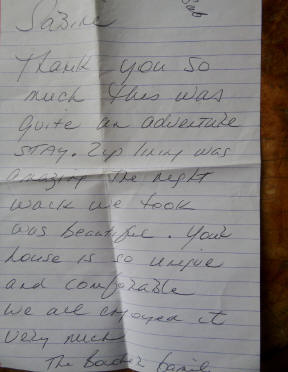 Sab
Sabine
Thank you so
much this was
quite an adventure
STAY. Zip lining was
amazing The night
walk we took
was beautiful. Your
house is so unique
and comfortable
we all enjoyed it
very much
The